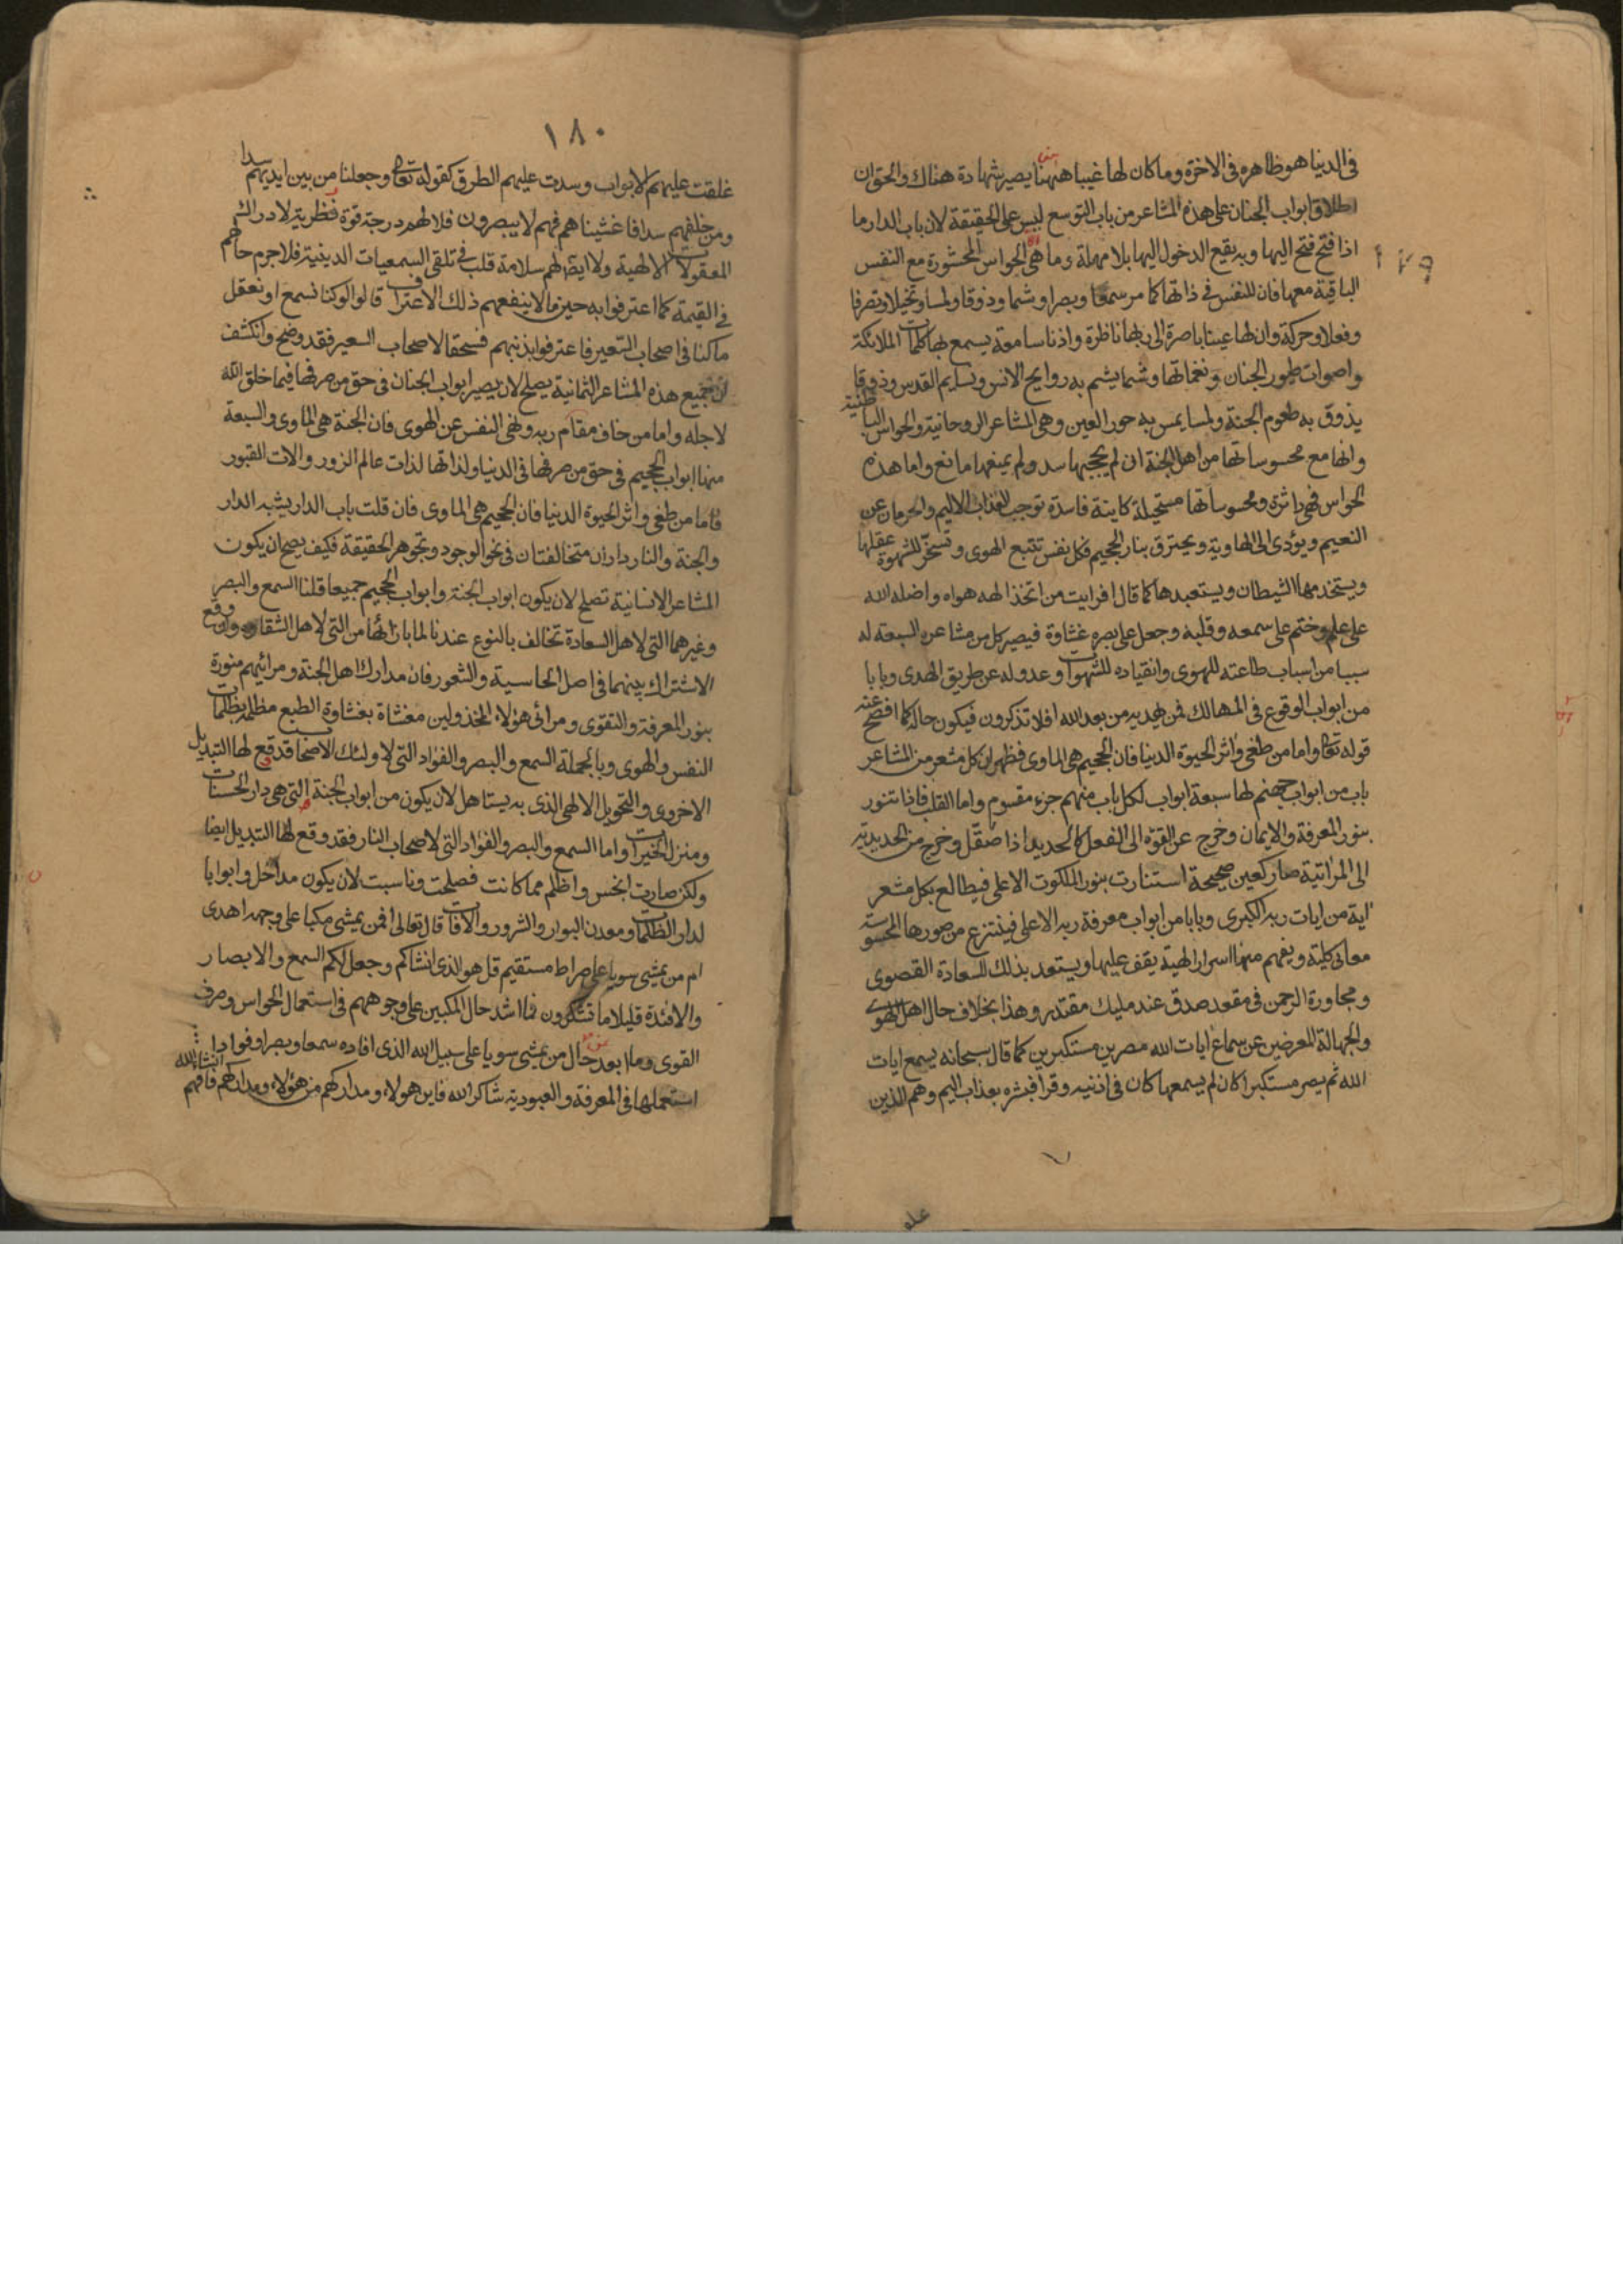 فى الدنيا هو ظاهره فى الاخرة وما كان لها غيبا ههنا يصير شهادة هناك والحق ان
اطلاق ابواب الجنان على هذه المشاعر من باب التوسع ليس على الحقيقة لان باب الدار ما
اذا فتح فتح اليها وبه يقع الدخول اليها بلا مهلة وما هى الحواس المحشورة مع النفس
الباقية معها فان للنفس فى ذاتها كما مر سمعا وبصرا وشما وذوقا ولمسا وتخيلا وتصرفا
وفعلا وحركة وان لها عينا باصرة الى ربها ناظرة واذنا سامعة يسمع لها كلمات الملائكة
واصوات طيور الجنان ونغماتها وشما يشم به روايح الانس ونسايم القدس وذوقا
يذوق به طعوم الجنة ولمسا يمس به حور العين وهى المشاعر الروحانية والحواس الباطنية
وانها مع محسوساتها من اهل الجنة ان لم يحجبها سد ولم يمنعها مانع واما هذه
الحواس فهى داثرة ومحسوساتها مستحيلة كاينة فاسدة توجب للعذاب الاليم والحرمان عن
النعيم ويؤدى الى الهاوية ويحترق بنار الجحيم فكل نفس تتبع الهوى وتسخر للشهوة عقلها
ويستخدمها الشيطان ويستعبدها كما قال افرايت من اتخذ الهه هواه واضله الله
على علم وختم على سمعه وقلبه وجعل على بصره غشاوة فيصير كل من مشاعره السبعة له
سببا من اسباب طاعته للهوى وانقياده للشهوات وعدوله عن طريق الهدى وبابا
من ابواب الوقوع فى المهالك فمن يهديه من بعد الله افلا تذكرون فيكون حاله كما افصح عنه
قوله تعالى واما من طغى واثر الحيوة الدنيا فان الجحيم هى الماوى فظهر ان كل مشعر من المشاعر
باب من ابواب جهنم لها سبعة ابواب لكل باب منهم جزء مقسوم واما القلب فاذا تنور
بنور المعرفة والايمان وخرج عن القوة الى الفعل كالحديد اذا صقل وخرج من الحديدية
الى المراتية صار كعين صحيحة استنارت بنور الملكوت الاعلى فيطالع بكل مشعر
اية من ايات ربه الكبرى وبابا من ابواب معرفة ربه الاعلى فينتزع من صورها المحسوسة
معانى كلية ويفهم منها اسرار الهية يقف عليها ويستعد بذلك للسعادة القصوى
ومجاورة الرحمن فى مقعد صدق عند مليك مقتدر وهذا بخلاف حال اهل الهوى
والجهالة المعرضين عن سماع ايات الله مصرين مستكبرين كما قال سبحانه يسمع ايات
الله ثم يصر مستكبرا كان لم يسمعها كان فى اذنيه وقرا فبشره بعذاب اليم وهم الذين
١٨٠
غلقت عليهم الابواب وسدت عليهم الطرق كقوله تعالى وجعلنا من بين ايديهم سدا
ومن خلفهم سدا فاغشيناهم فهم لا يبصرون فلا لهم درجة قوة نظرية لادراك
المعقولات الالهية ولا ايضا لهم سلامة قلب فى تلقى السمعيات الدينية فلا جرم حالهم
فى القيمة كما اعترفوا به حين ما لا ينفعهم ذلك الاعتراف قالوا لو كنا نسمع او نعقل
ما كنا فى اصحاب السعير فاعترفوا بذنبهم فسحقا لاصحاب السعير فقد وضح وانكشف
ان جميع هذه المشاعر الثمانية يصلح لان يصير ابواب الجنان فى حق من صرفها فيما خلق الله
لاجله واما من خاف مقام ربه ونهى النفس عن الهوى فان الجنة هى الماوى والسبعة
منها ابواب الجحيم فى حق من صرفها فى الدنيا ولذاتها لذات عالم الزور والات القبور
فاما من طغى واثر الحيوة الدنيا فان الجحيم هى الماوى فان قلت باب الدار يشبه الدار
والجنة والنار داران متخالفتان فى نحو الوجود وتجوهر الحقيقة فكيف يصح ان يكون
المشاعر الانسانية تصلح لان يكون ابواب الجنة وابواب الجحيم جميعا قلنا السمع والبصر
وغيرهما التى لاهل السعادة تخالف بالنوع عندنا لما بازائها من التى لاهل الشقاوة ووقع
الاشتراك بينهما فى اصل الحاسية والشعور فان مدارك اهل الجنة ومرائيهم منورة
بنور المعرفة والتقوى ومرائى هؤلاء المخذولين مغشاة بغشاوة الطبع مظلمة بظلمات
النفس والهوى وبالجملة السمع والبصر والفؤاد التى لاولئك الاصحاب قد وقع لها التبديل
الاخروى والتحويل الالهى الذى به يستاهل لان يكون من ابواب الجنة التى هى دار الحسنات
ومنزل الخيرات واما السمع والبصر والفؤاد التى لاصحاب النار فقد وقع لها التبديل ايضا
ولكن صارت انحس واظلم مما كانت فصلحت وناسبت لان يكون مداخل وابوابا
لدار الظلمات ومعدن البوار والشرور والافات قال تعالى افمن يمشى مكبا على وجهه اهدى
ام من يمشى سويا على صراط مستقيم قل هو الذى انشاكم وجعل لكم السمع والابصار
والافئدة قليلا ما تشكرون فما اشد حال المكبين على وجوههم فى استعمال الحواس وصرف
القوى وما ابعد حال من يمشى سويا على سبيل الله الذى افاده سمعا وبصرا وفوادا
استعملها فى المعرفة والعبودية شاكرا لله فاين هولاء ومداركهم من هؤلاء ومداركهم فافهم انشاء الله